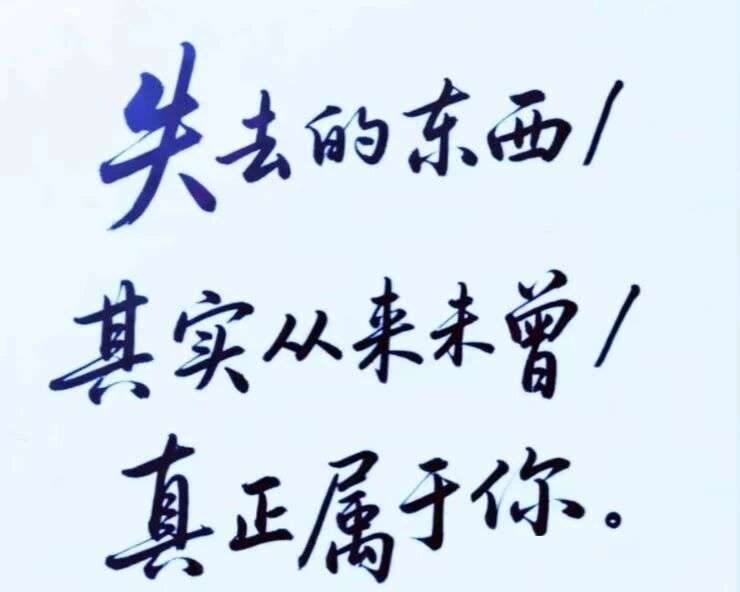 失去的东西/
其实从来未曾/
真正属于你。